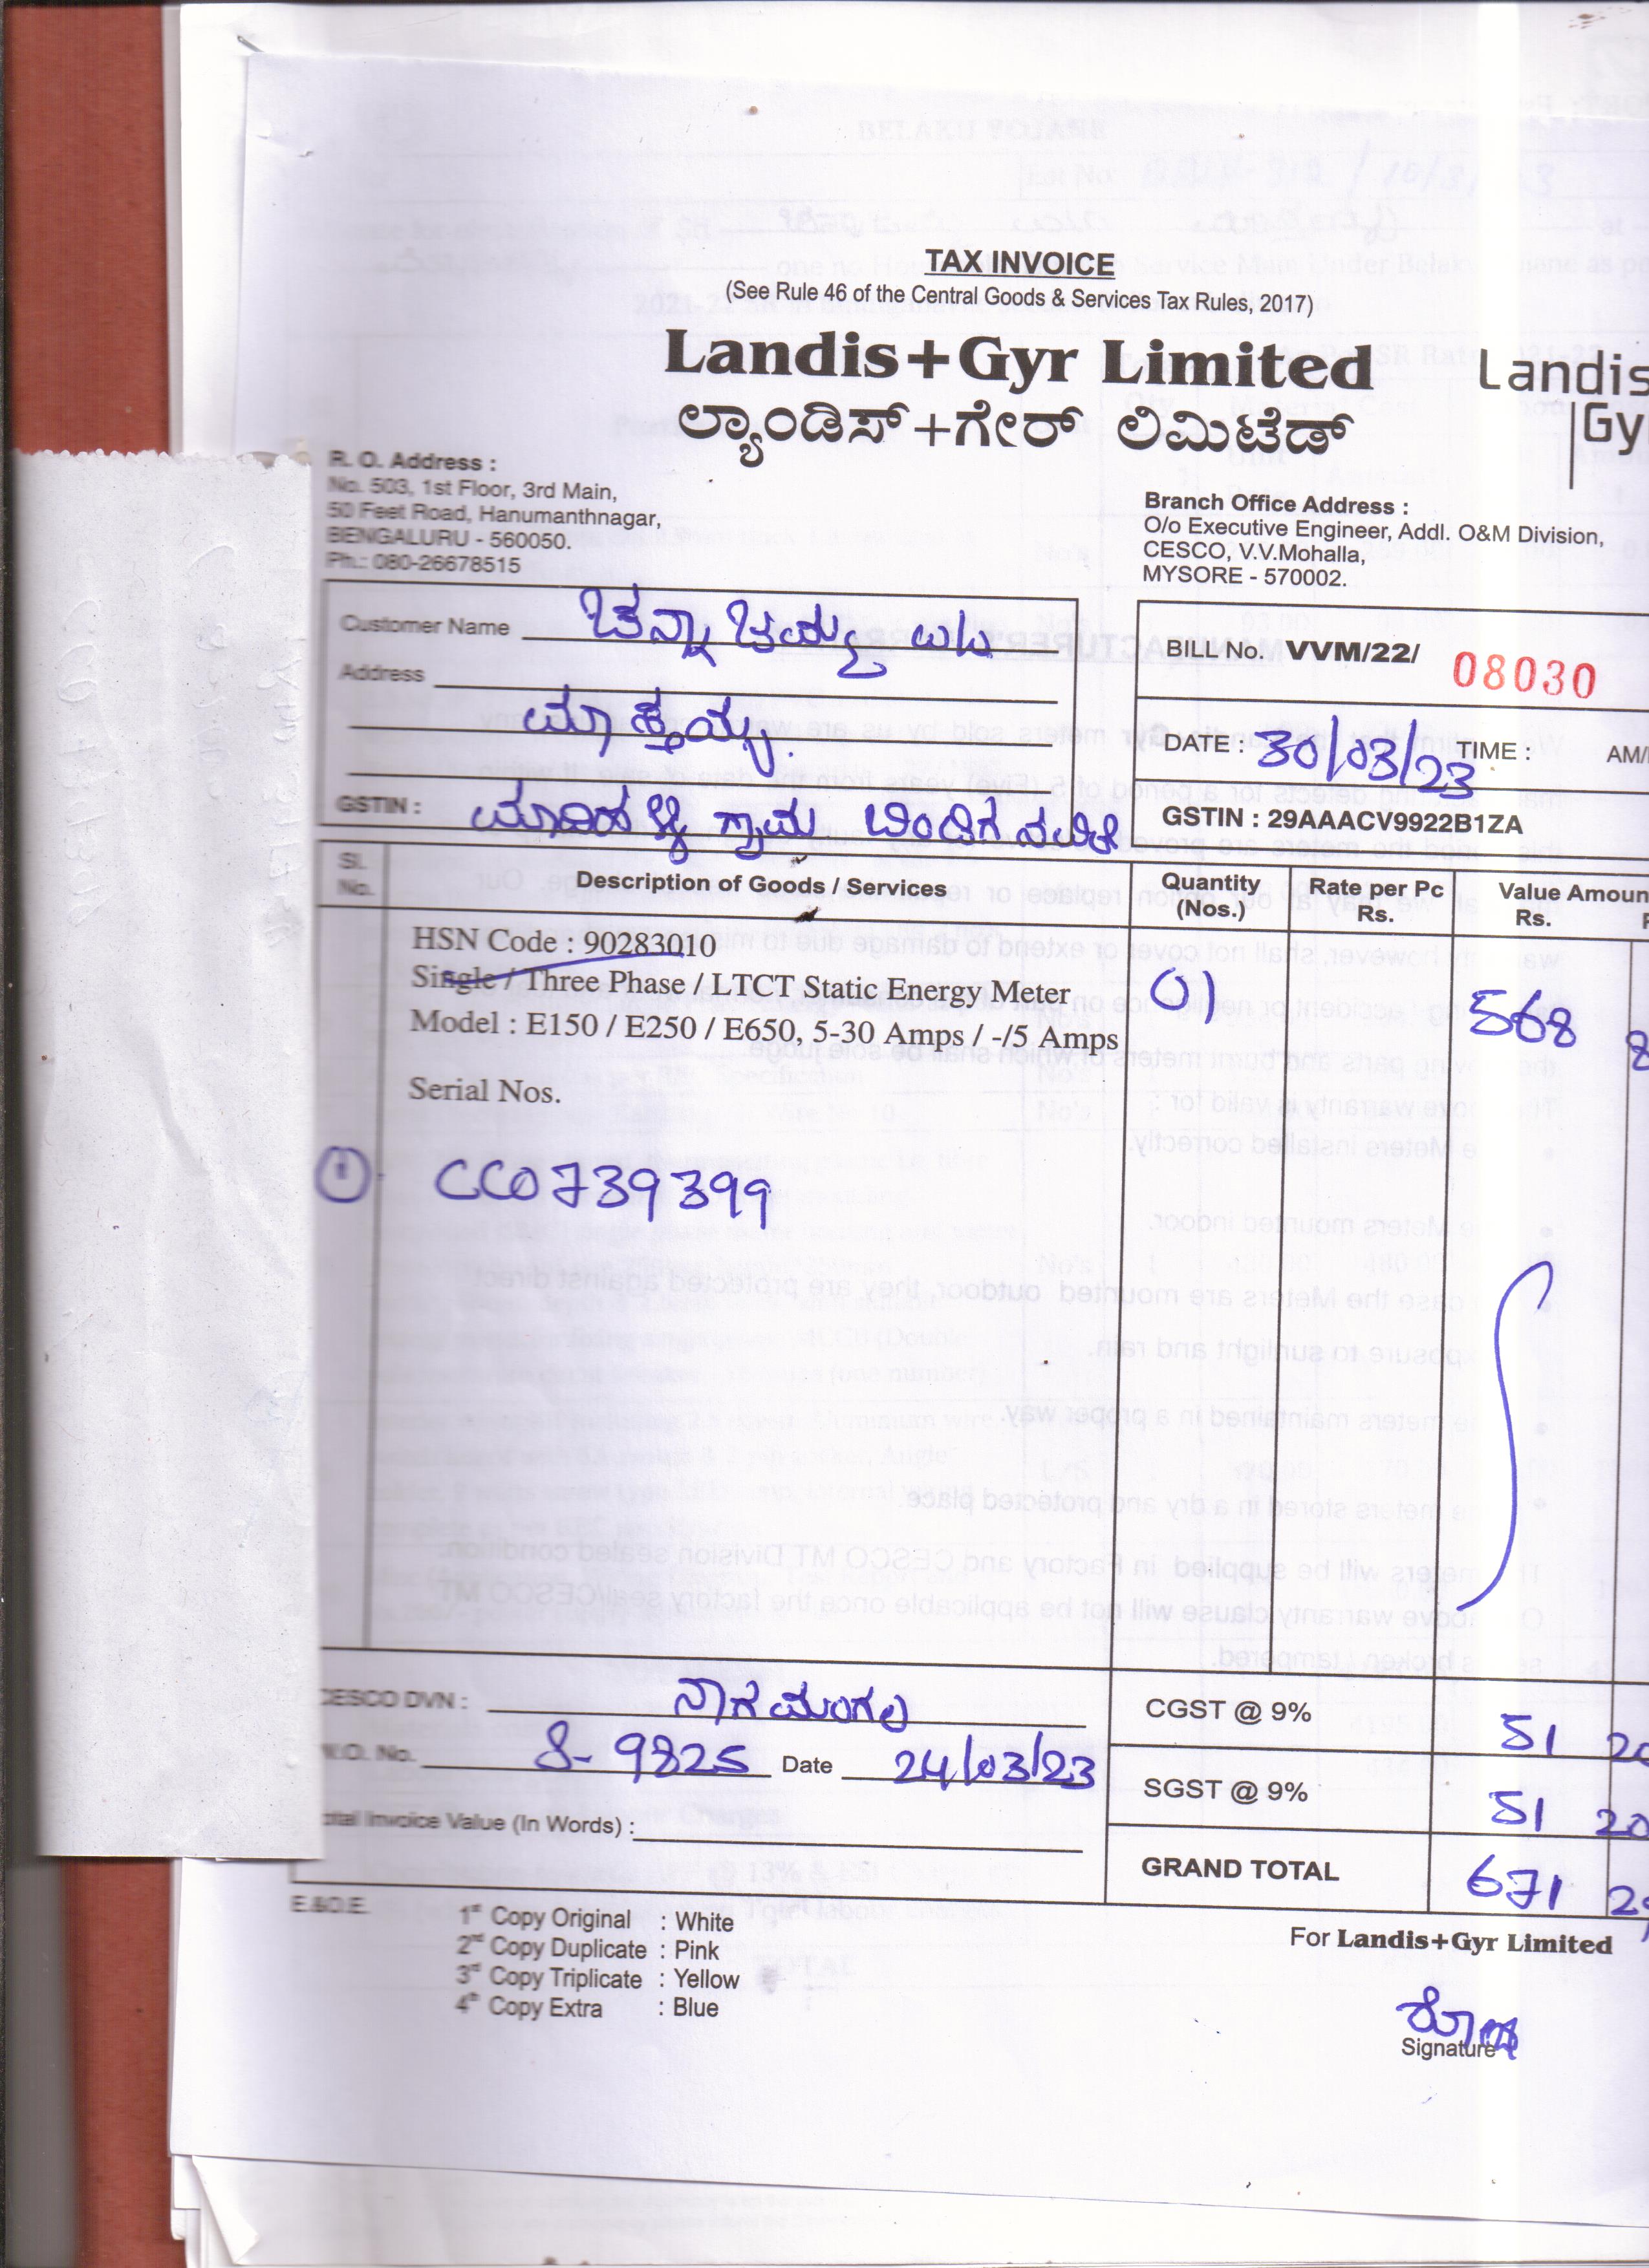 TAX INVOICE
(See Rule 46 of the Central Goods & Services Tax Rules, 2017)
Landis+Gyr Limited
ಲ್ಯಾಂಡಿಸ್+ಗೇರ್ ಲಿಮಿಟೆಡ್
Landis
Gy
R. O. Address :
No. 503, 1st Floor, 3rd Main,
50 Feet Road, Hanumanthnagar,
BENGALURU - 560050.
Ph.: 080-26678515
Branch Office Address :
O/o Executive Engineer, Addl. O&M Division,
CESCO, V.V.Mohalla,
MYSORE - 570002.
Customer Name
Address
GSTIN : ಗ್ರಾಮ
BILL No. VVM/22/ 08030
DATE : 30/03/23 TIME : AM/
GSTIN : 29AAACV9922B1ZA
Sl. No. Description of Goods / Services Quantity (Nos.) Rate per Pc Rs. Value Amoun Rs.
HSN Code : 90283010
Single / Three Phase / LTCT Static Energy Meter 01 568 8
Model : E150 / E250 / E650, 5-30 Amps / -/5 Amps
Serial Nos.
1 CC0739399
CESCO DVN : ನಾಗಮಂಗಲ
W.O. No. 8-9825 Date 24/03/23
Total Invoice Value (In Words) :
CGST @ 9% 51 20
SGST @ 9% 51 20
GRAND TOTAL 671 2
E.&O.E.
1st Copy Original : White
2nd Copy Duplicate : Pink
3rd Copy Triplicate : Yellow
4th Copy Extra : Blue
For Landis+Gyr Limited
Signature